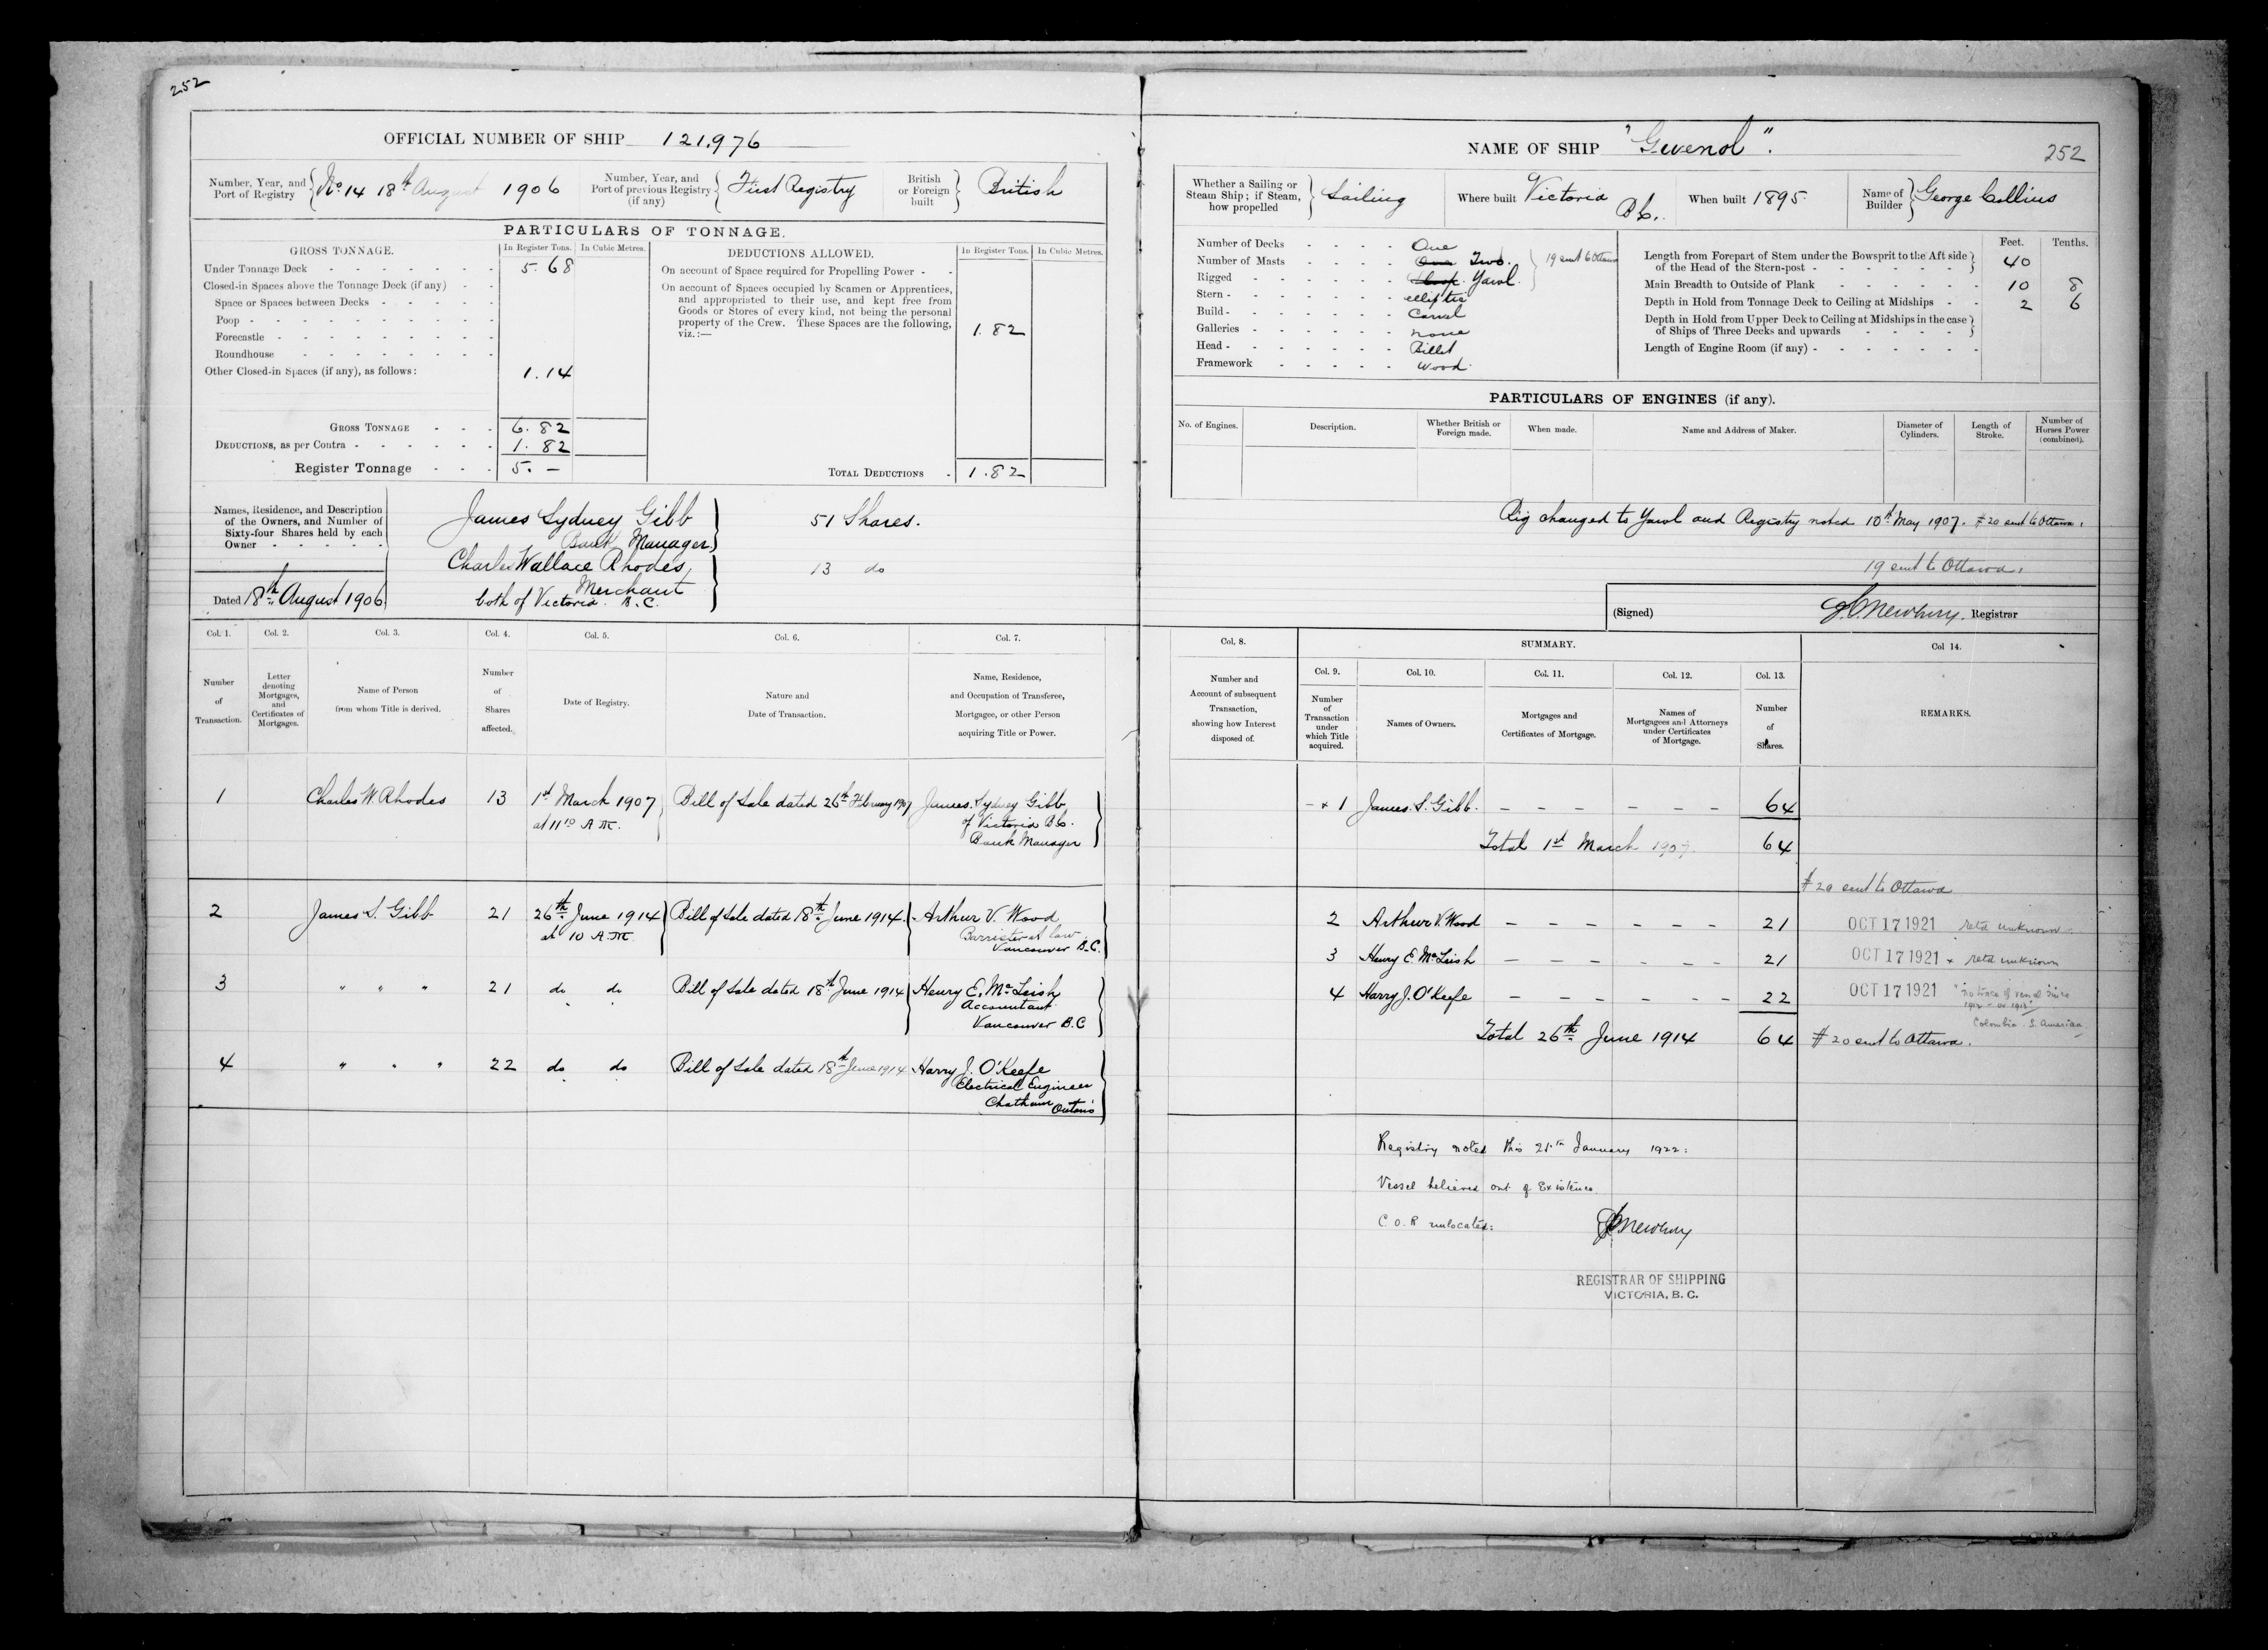 252
OFFICIAL NUMBER OF SHIP 121,976
Number, Year, and Port of Registry No 14 18th August 1906
Number, Year, and Port of previous Registry (if any) First Registry
British or Foreign built British
PARTICULARS OF TONNAGE.
GROSS TONNAGE. In Register Tons. In Cubic Metres.
Under Tonnage Deck 5.68
Closed-in Spaces above the Tonnage Deck (if any)
Space or Spaces between Decks
Poop
Forecastle
Roundhouse
Other Closed-in Spaces (if any), as follows: 1.14
GROSS TONNAGE 6.82
DEDUCTIONS, as per Contra 1.82
Register Tonnage 5. —
DEDUCTIONS ALLOWED. In Register Tons. In Cubic Metres.
On account of Space required for Propelling Power
On account of Spaces occupied by Seamen or Apprentices,
and appropriated to their use, and kept free from
Goods or Stores of every kind, not being the personal
property of the Crew. These Spaces are the following,
viz.:— 1.82
TOTAL DEDUCTIONS 1.82
Names, Residence, and Description
of the Owners, and Number of
Sixty-four Shares held by each
Owner
James Sydney Gibb 51 Shares.
Bank Manager
Charles Wallace Rhodes, 13 do
Merchant
both of Victoria B.C.
Dated 18th August 1906
NAME OF SHIP "Gwenol". 252
Whether a Sailing or Steam Ship; if Steam, how propelled Sailing
Where built Victoria B.C.
When built 1895.
Name of Builder George Collins
Number of Decks One
Number of Masts One Two. 19 sent to Ottawa
Rigged Sloop Yawl.
Stern elliptic
Build Carvel
Galleries none
Head Billet
Framework wood.
Feet. Tenths.
Length from Forepart of Stem under the Bowsprit to the Aft side
of the Head of the Stern-post 40
Main Breadth to Outside of Plank 10 8
Depth in Hold from Tonnage Deck to Ceiling at Midships 2 6
Depth in Hold from Upper Deck to Ceiling at Midships in the case
of Ships of Three Decks and upwards
Length of Engine Room (if any)
PARTICULARS OF ENGINES (if any).
No. of Engines. Description. Whether British or Foreign made. When made. Name and Address of Maker. Diameter of Cylinders. Length of Stroke. Number of Horses Power (combined).
Rig changed to Yawl and Registry noted 10th May 1907. # 20 sent to Ottawa.
19 sent to Ottawa.
(Signed) J.C. Newbury. Registrar
Col. 1. Col. 2. Col. 3. Col. 4. Col. 5. Col. 6. Col. 7.
Number of Transaction.
Letter denoting Mortgages, and Certificates of Mortgages.
Name of Person from whom Title is derived.
Number of Shares affected.
Date of Registry.
Nature and Date of Transaction.
Name, Residence, and Occupation of Transferee, Mortgagee, or other Person acquiring Title or Power.
1 Charles W. Rhodes 13 1st March 1907 Bill of Sale dated 26th February 1907 James Sydney Gibb
at 11 10 A.M. of Victoria B.C.
Bank Manager
2 James S. Gibb 21 26th June 1914 Bill of Sale dated 18th June 1914. Arthur V. Wood
at 10 A.M. Barrister at law
Vancouver B.C.
3 " " " 21 do do Bill of Sale dated 18th June 1914 Henry E. McLeish
Accountant
Vancouver B.C
4 " " " 22 do do Bill of Sale dated 18th June 1914 Harry J. O'Keefe
Electrical Engineer
Chatham Ontario
Col. 8. SUMMARY. Col 14.
Col. 9. Col. 10. Col. 11. Col. 12. Col. 13.
Number and Account of subsequent Transaction, showing how Interest disposed of.
Number of Transaction under which Title acquired.
Names of Owners.
Mortgages and Certificates of Mortgage.
Names of Mortgagees and Attorneys under Certificates of Mortgage.
Number of Shares.
REMARKS.
1 James S. Gibb. — — — — — — 64
Total 1st March 1907 64
# 20 sent to Ottawa
2 Arthur V. Wood — — — — — — 21 OCT 17 1921 retd unknown
3 Henry E. McLeish — — — — — — 21 OCT 17 1921 x retd unknown
4 Harry J. O'Keefe — — — — — — 22 OCT 17 1921 "no trace of vessel since
1912 - or 1913"
Colombia. S. America
Total 26th June 1914 64 # 20 sent to Ottawa.
Registry noted this 21st January 1922:
Vessel believed out of Existence
C.O.R unlocated: J.C. Newbury
REGISTRAR OF SHIPPING
VICTORIA, B. C.